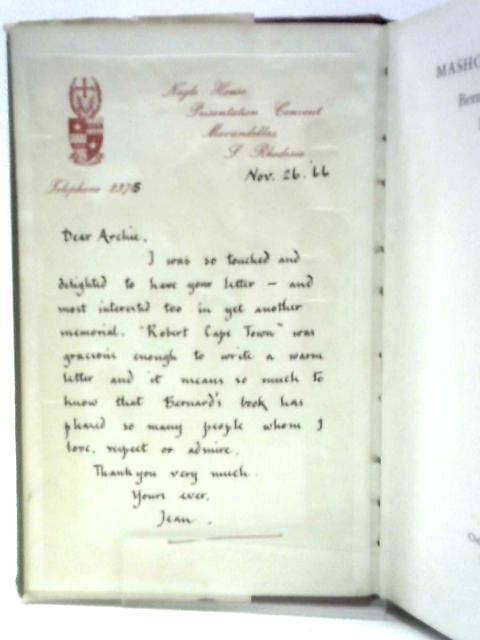 Nagle House,
Presentation Convent
Marandellas
S. Rhodesia
Telephone 2375
Nov. 26. '66
Dear Archie,
I was so touched and
delighted to have your letter – and
most interested too in yet another
memorial. "Robert Cape Town" was
gracious enough to write a warm
letter and it means so much to
know that Bernard's book has
pleased so many people whom I
love, respect or admire.
Thank you very much.
Yours ever,
Jean.
MASHO
Bern